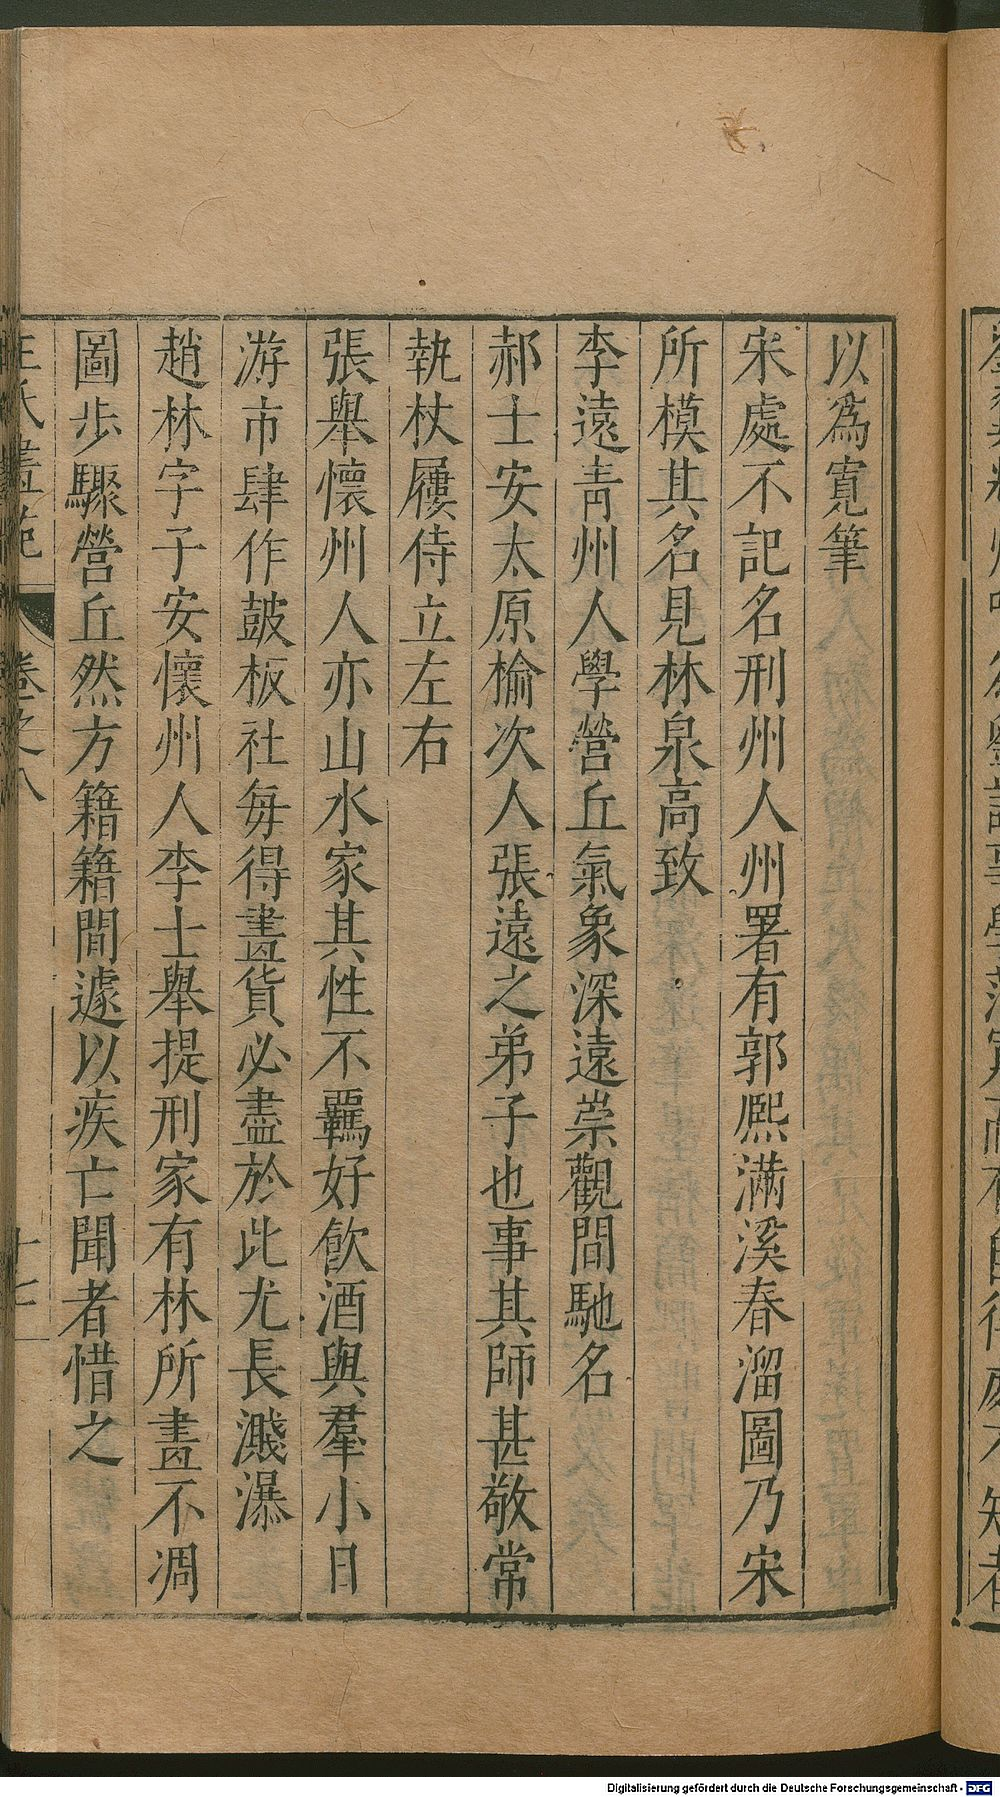 以爲寬筆
宋處不記名刑州人州署有郭熙滿溪春溜圖乃宋
所模其名見林泉高致
李遠青州人學營丘氣象深遠崇觀間馳名
郝士安太原榆次人張遠之弟子也事其師甚敬常
執杖屨侍立左右
張舉懷州人亦山水家其性不羈好飲酒與羣小日
游市肆作鼓板社每得畫貨必盡於此尤長濺瀑
趙林字子安懷州人李士舉提刑家有林所畫不凋
圖步驟營丘然方籍籍間遽以疾亡聞者惜之
王氏畫苑 卷之八 十七
Digitalisierung gefördert durch die Deutsche Forschungsgemeinschaft - DFG